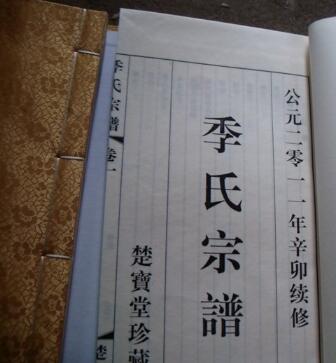 公元二零一一年辛卯续修
季氏宗譜
楚寶堂珍藏
季氏宗譜
卷一
楚